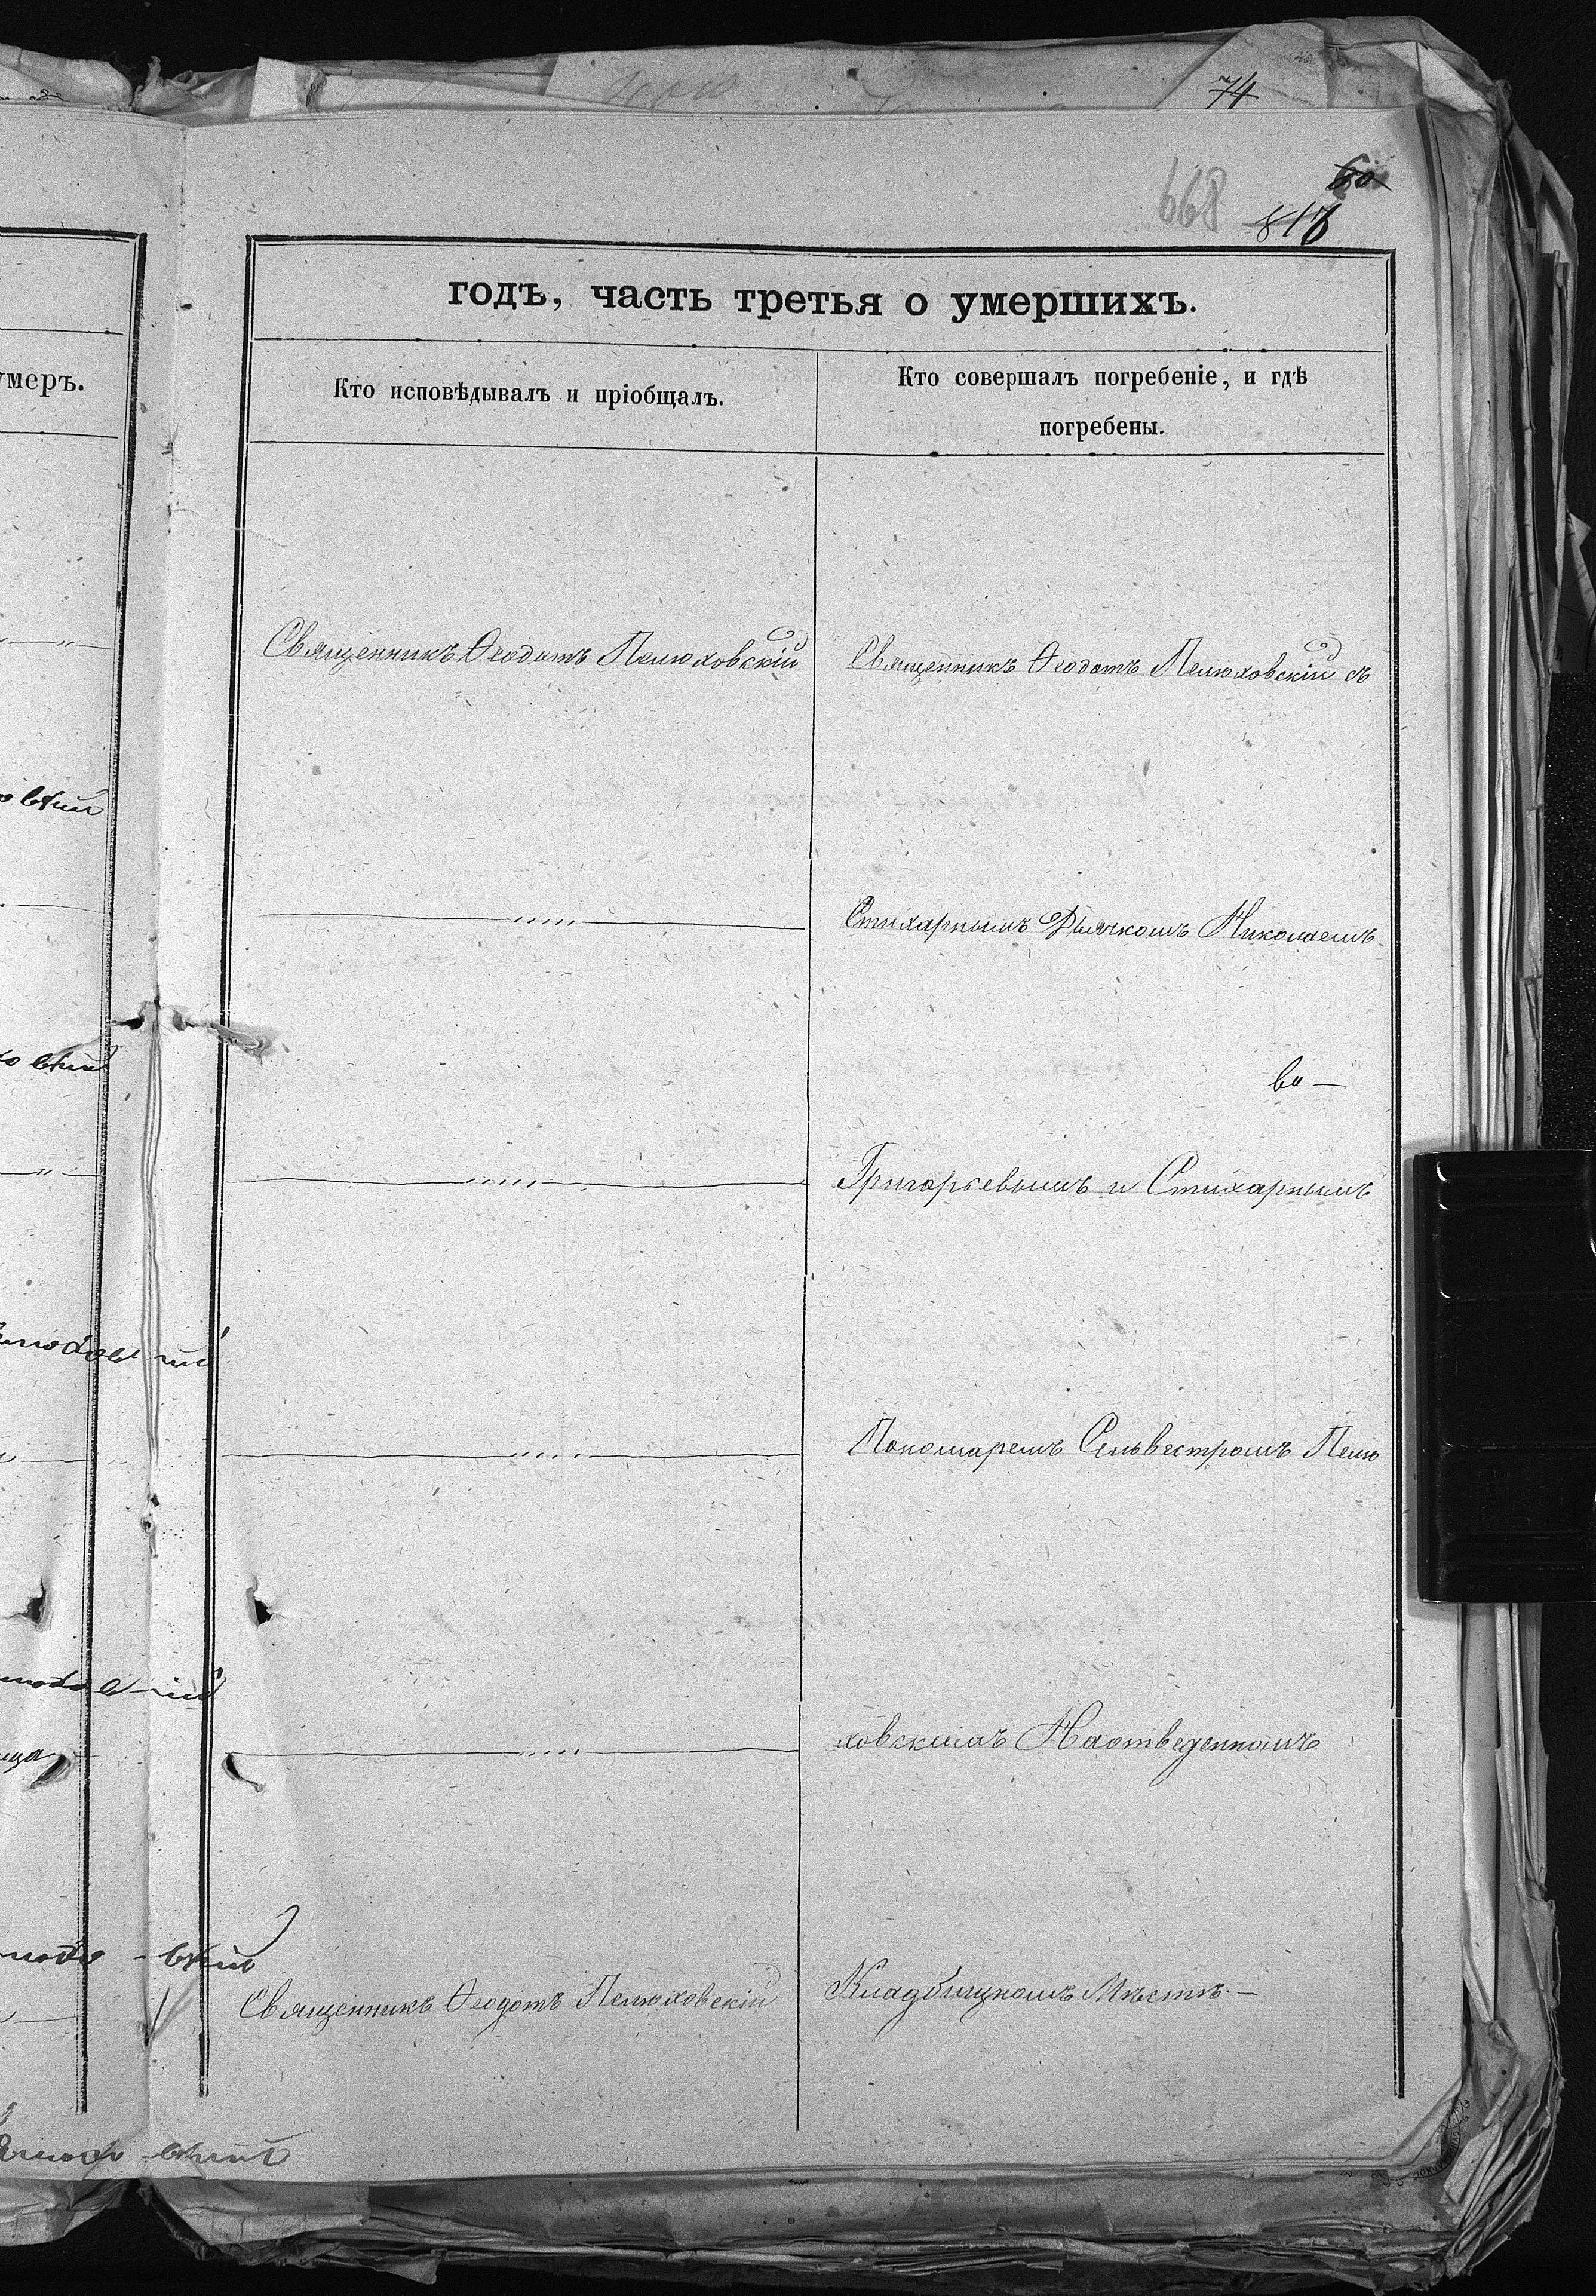 74
60
668 818
годъ, часть третья о умершихъ.
умеръ.
Кто исповѣдывалъ и пріобщалъ.
Кто совершалъ погребеніе, и гдѣ
погребены.
Священникъ Ѳеодотъ Пелюховскій
Священникъ Ѳеодотъ Пелюховскій съ
Стихарнымъ Дьячкомъ Николаемъ
Григорьевымъ и Стихарнымъ
Пономаремъ Сельвестромъ Пелю
ховскимъ На отведенномъ
Священникъ Ѳеодотъ Пелюховскій
Кладбищномъ Мѣстѣ. —